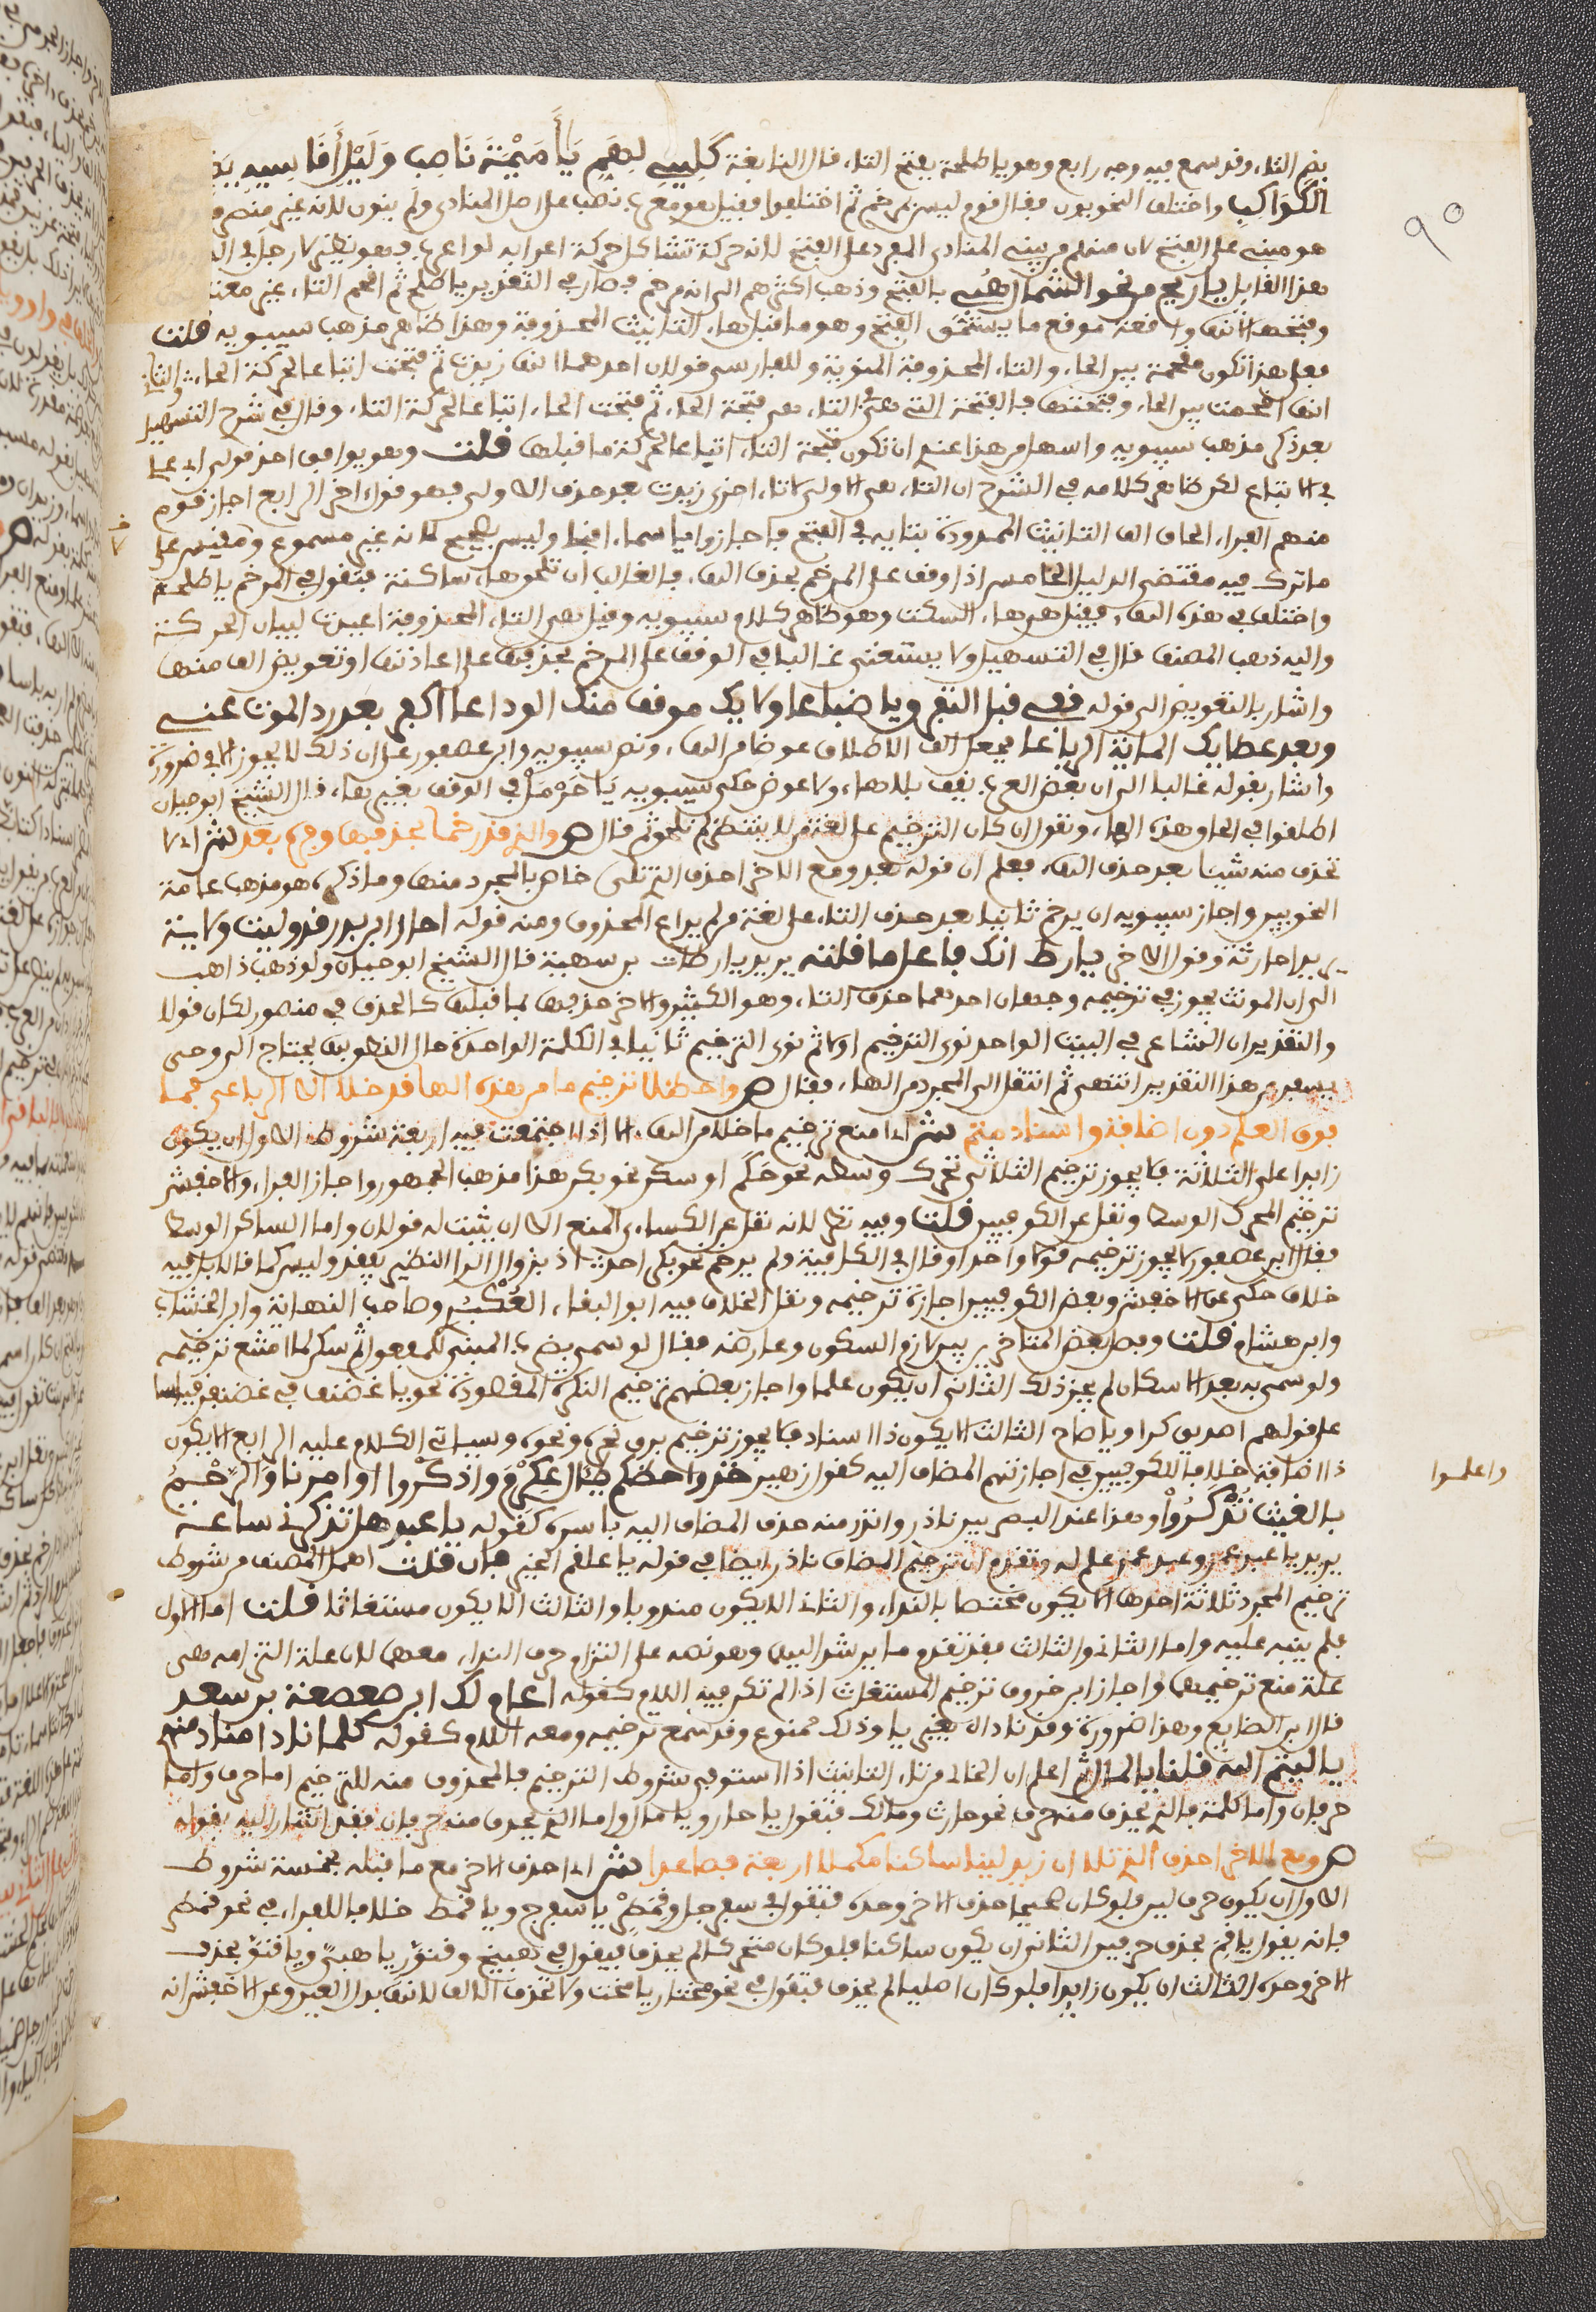 بضم التاء وقد سمع فيه وجه رابع وهو يا طلحة بفتح التاء قال النابغة كليني لهم يا أميمة ناصب وليل أقاسيه
الكواكب واختلف النحويون فقال قوم ليس بمرخم ثم اختلفوا فقيل هو معرب نصب على اصل المنادى ولم ينون لانه غير منصرف
هو مبني على الفتح لان منهم من يبني المنادى المفرد على الفتح لانه حركة تشاكل حركة اعرابه لو اعرب فهو نظير لا رجل في
هذا القايل يا ريح من نحو الشمال هبي بالفتح وذهب اكثرهم الى انه مرخم فصار في التقدير يا طلح ثم اقحم التاء غير معتد
وفتحها لانها واقعة موقع ما يستحق الفتح وهو ما قبلها التانيث المحذوفة وهذا ظاهر مذهب سيبويه قلت
فعلى هذا تكون مقحمة بين الحاء والتاء المحذوفة المنوية وللفارسي قولان احدهما انها زيدت ثم فتحت اتباعا لحركة الحاء والثاني
انها اقحمت بين الحاء وفتحتها فالفتحة التي في التاء هي فتحة الحاء ثم فتحت الحاء اتباعا لحركة التاء وقال في شرح التسهيل
بعد ذكر مذهب سيبويه واسهل من هذا عندي ان تكون فتحة التاء اتباعا لحركة ما قبلها قلت وهو يوافق احد قولي ابي علي
في الاتباع لكن ظاهر كلامه في الشرح ان التاء هي الاولى لا تاء اخرى زيدت بعد حذف الاولى فهو قول اخر الرابع اجاز قوم
منهم الفراء الحاق الف التانيث الممدودة بتايه في الفتح فاجازوا يا اسماء اقبلي وليس بصحيح لانه غير مسموع ومقيس على
ما ترك فيه مقتضى الدليل الخامس اذا وقف على المرخم بحذف الهاء فالغالب ان تلحقها ساكنة فتقول في المرخم يا طلحة
واختلف في هذه الهاء فقيل هي هاء السكت وهو ظاهر كلام سيبويه وقيل هي التاء المحذوفة اعيدت لبيان الحركة
واليه ذهب المصنف قال في التسهيل ولا يستغنى غالبا في الوقف على المرخم بحذفها على اعادتها او تعويض الف منها
واشار بالتعويض الى قوله قفي قبل التفرق يا ضباعا ولا يك موقف منك الوداعا اكفرا بعد رد الموت عني
وبعد عطايك الماية الرتاعا فجعل الف الاطلاق عوضا من الهاء ونص سيبويه وابن عصفور على ان ذلك لا يجوز الا في ضرورة
واشار بقوله غالبا الى ان بعض العرب يقف بلا هاء ولا عوض حكى سيبويه يا حرمل في الوقف بغير هاء قال الشيخ ابو حيان
اطلقوا في الحاق هذه الهاء ونقول ان كان الترخيم على لغة من لا ينتظر لم تلحق ثم قال ص والذي قد رخما بحذفها وفره بعد ش اي لا
تحذف منه شيئا بعد حذف الهاء فعلم ان قوله بعد ومع الاخر احذف الذي تلا خاص بالمجرد منها وما ذكره هو مذهب عامة
النحويين واجاز سيبويه ان يرخم ثانيا بعد حذف التاء على لغة من لم يراع المحذوف ومنه قوله احار ابن بدر قد وليت ولاية
يريد احارثة وقول الاخر يا ارط انك فاعل ما قلته يريد يا ارطاة بن سهية قال الشيخ ابو حيان ولو ذهب ذاهب
الى ان المونث يجوز في ترخيمه وجهان احدهما حذف التاء وهو الكثير والاخر حذفها لما قبلها كالحذف في منصور لكان قولا
والتقدير ان الشاعر في البيت الواحد نوى الترخيم اولا ثم نوى الترخيم ثانيا في الكلمة الواحدة حال النطق بها يحتاج الى وحي
يسفر عن هذا التقدير انتهى ثم انتقل الى المجرد من الهاء فقال ص واحظلا ترخيم ما من هذه الها قد خلا الا الرباعي فما
فوق العلم دون اضافة واسناد متم ش اي امنع ترخيم ما خلا من الهاء الا اذا اجتمعت فيه اربعة شروط الاول ان يكون
زايدا على الثلاثة فلا يجوز ترخيم الثلاثي تحرك وسطه نحو حكم او سكن نحو بكر هذا مذهب الجمهور واجاز الفراء والاخفش
ترخيم المحرك الوسط ونقل عن الكوفيين قلت وفيه نظر لانه نقل عن الكساءي المنع الا ان يثبت له قولان واما الساكن الوسط
فقال ابن عصفور لا يجوز ترخيمه قولا واحدا وقال في الكافية ولم يرخم نحو بكر احد
خلاف حكي عن الاخفش وبعض الكوفيين اجازة ترخيمه ونقل الخلاف فيه ابو البقاء العكبري وصاحب النهاية وابن الخشاب
وابن هشام قلت وفصل بعض المتاخرين بين لازم السكون وعارضه فقال لو سمي بضرب المبني للمفعول ثم سكن لما امتنع ترخيمه
ولو سمي به بعد الاسكان لم يجز ذلك الثاني ان يكون علما واجاز بعضهم ترخيم النكرة المقصودة نحو يا غضنف في غضنفر قياسا
على قولهم اطرق كرا ويا صاح الثالث الا يكون ذا اسناد فلا يجوز ترخيم برق نحره ونحوه وسياتي الكلام عليه الرابع الا يكون
ذا اضافة خلافا للكوفيين في اجازتهم المضاف اليه كقول زهير خذوا حظكم يال عكرم واذكروا اواصرنا والرحم
بالغيب تذكروا وهذا عند البصريين نادر واندر منه حذف المضاف اليه باسره كقوله يا عبد هل تذكرني ساعة
يريد يا عبد عمرو وعبد عمرو علم له وتقدم ان ترخيم المضاف نادر ايضا في قوله يا علقم الخير فان قلت اهمل المصنف من شروط
ترخيم المجرد ثلاثة احدها الا يكون مختصا بالنداء والثاني الا يكون مندوبا والثالث الا يكون مستغاثا قلت اما الاول
فلم ينبه عليه واما الثاني والثالث فقد تقدم ما يرشد اليهما وهو نصه على التزام حرف النداء معهما لان علة التزامه هي
علة منع ترخيمهما واجاز ابن خروف ترخيم المستغاث اذا لم تكن فيه اللام كقوله اعام لك ابن صعصعة بن سعد
قال ابن الضايع وهذا ضرورة وقد ناداه بغير يا وذلك ممنوع وقد سمع ترخيمه ومعه اللام كقوله كلما نادا مناد منهم
يا لتيم الله قلنا يا لمال اعلم ان الخالي من تاء التانيث اذا استوفى شروط الترخيم فالمحذوف منه للترخيم اما حرف واما
حرفان واما كلمة فالذي يحذف منه حرف نحو حارث ومالك فتقول يا حار ويا مال واما الذي يحذف منه حرفان فقد اشار اليه بقوله
ص ومع الاخر احذف الذي تلا ان زيد لينا ساكنا مكملا اربعة فصاعدا ش اي احذف الاخر مع ما قبله بخمسة شروط
الاول ان يكون حرف لين فلو كان صحيحا حذف الاخر وحده فتقول في سفرجل وقمطر يا سفرج ويا قمط خلافا للفراء في نحو قمطر
فانه يقول يا قم بحذف حرفين الثاني ان يكون ساكنا فلو كان متحركا لم يحذف فيقول في هبيخ وقنور يا هبي ويا قنو بحذف
الاخر وحده الثالث ان يكون زايدا فلو كان اصليا لم يحذف فتقول في نحو مختار يا مختا ولا تحذف الالف لانها بدل العين وعن الاخفش انه
واعلموا
٩٠